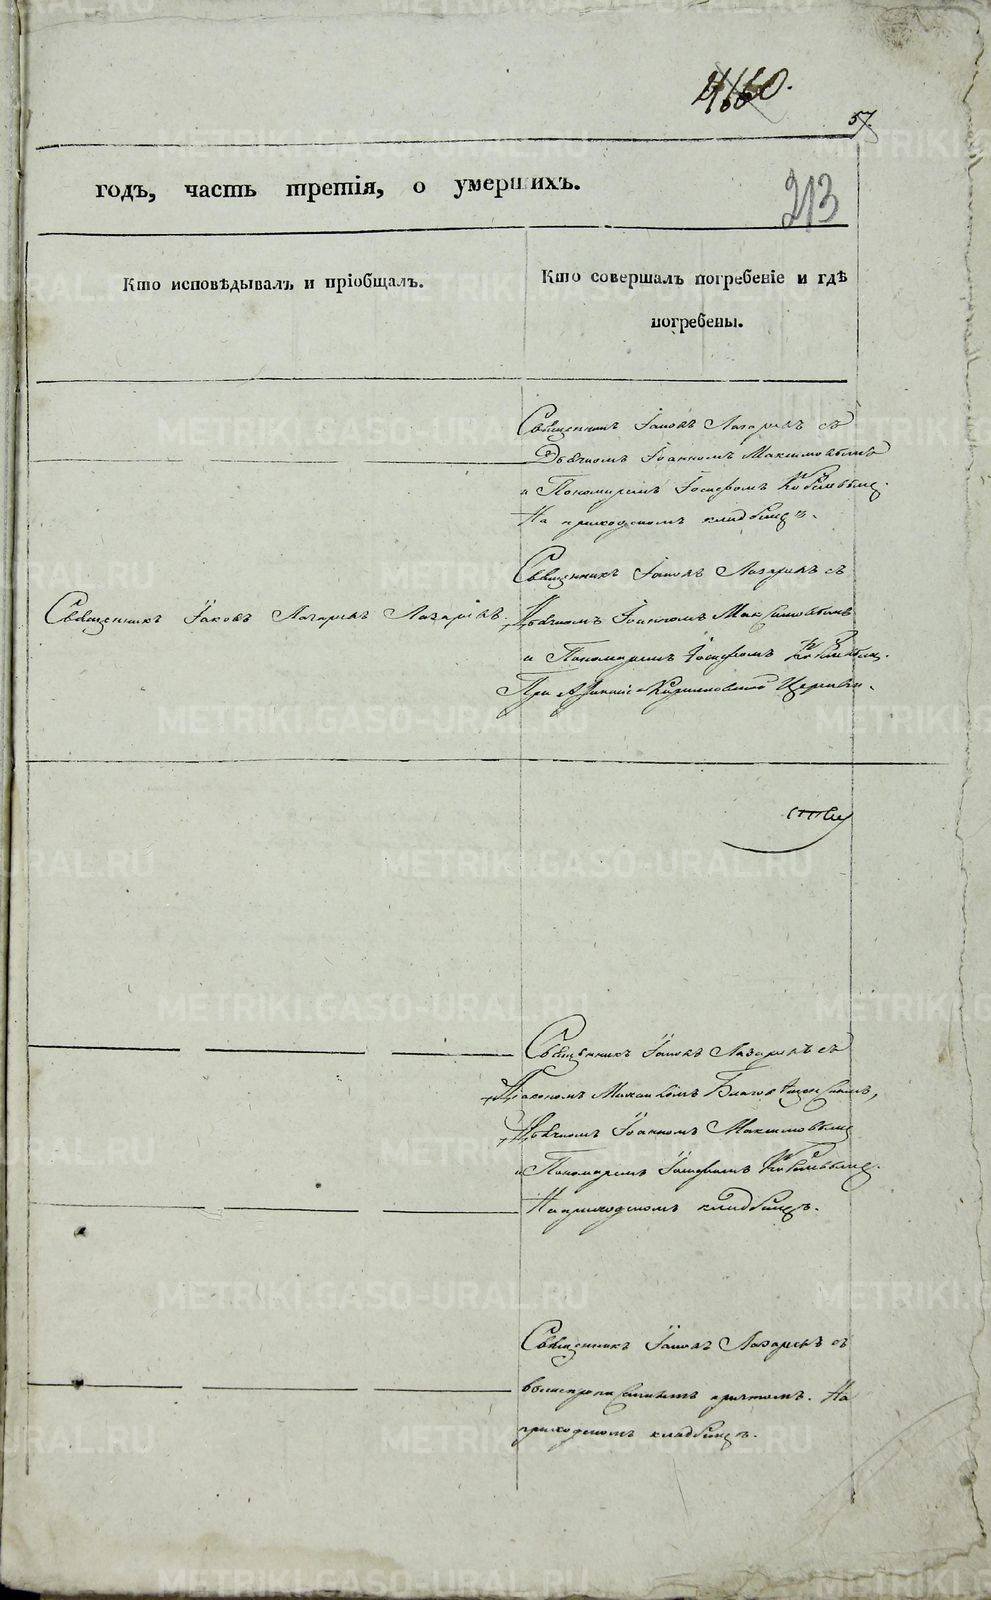 57.
213
годъ, часть третія, о умершихъ.
Кто исповѣдывалъ и пріобщалъ.
Кто совершалъ погребеніе и гдѣ
погребены.
Священникъ Іаковъ Лазаревъ съ
Дьячкомъ Іоанномъ Максимовымъ
и Пономаремъ Іосифомъ
На приходскомъ кладбищѣ.
Священникъ Іаковъ Лазаревъ Лазаревъ.
Священникъ Іаковъ Лазаревъ съ
Дьячкомъ Іоанномъ Максимовымъ
и Пономаремъ Іосифомъ
При Церкви.
Священникъ Іаковъ Лазаревъ съ
Діакономъ Михаиломъ Благовещенскимъ,
Дьячкомъ Іоанномъ Максимовымъ
и Пономаремъ Іосифомъ
На приходскомъ кладбищѣ.
Священникъ Іаковъ Лазаревъ съ
вышепрописаннымъ причтомъ. На
приходскомъ кладбищѣ.
METRIKI.GASO-URAL.RU